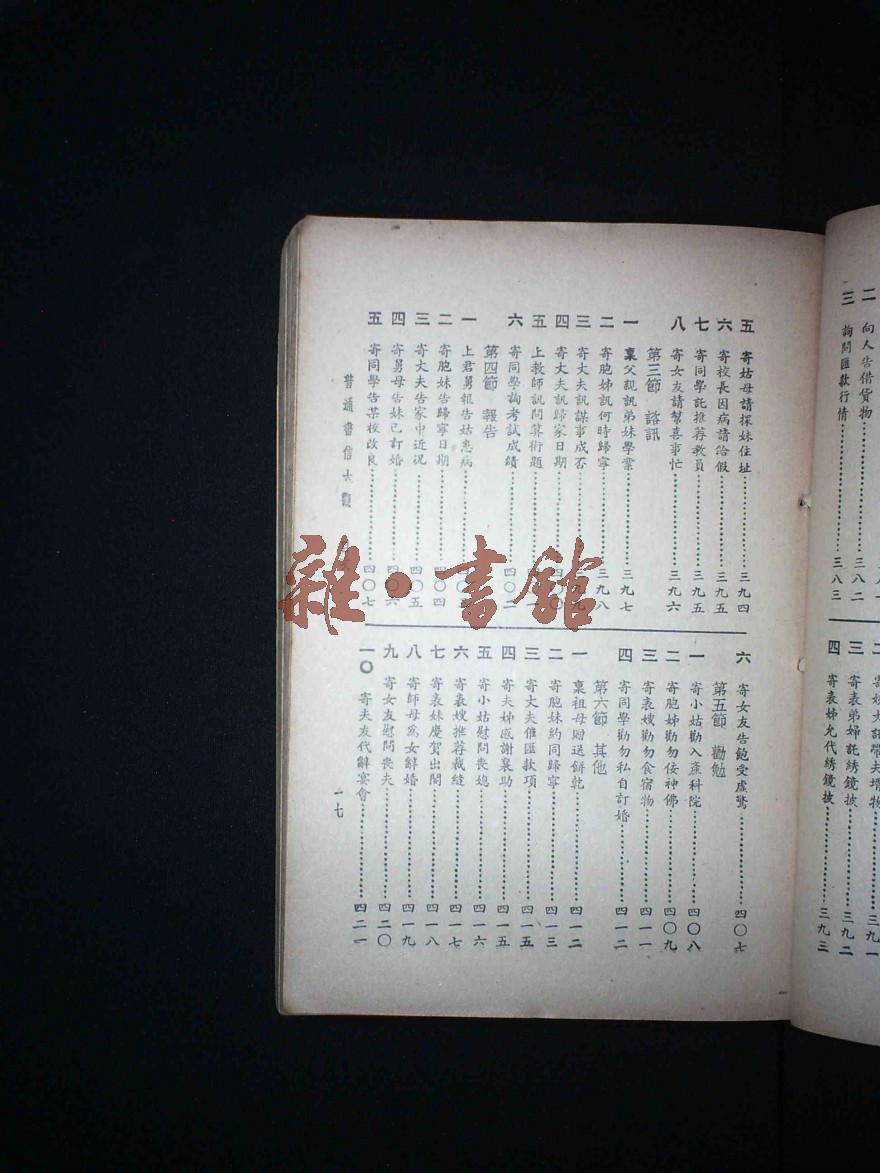 二 向人告借貨物……三八二
三 詢問匯款行情……三八三
三 寄表弟婦託綉鏡披……三九二
四 寄表姊允代綉鏡披……三九三
五 寄姑母請探妹住址……三九四
六 寄校長因病請給假……三九五
七 寄同學託推荐教員……三九五
八 寄女友請幫喜事忙……三九六
第三節 諮訊
一 稟父親訊弟妹學業……三九七
二 寄胞姊訊何時歸寧……三九八
三 寄丈夫訊謀事成否
四 寄丈夫訊歸家日期
五 上教師訊問算術題
六 寄同學詢考試成績……四〇二
第四節 報告
一 上君舅報告姑患病
二 寄胞妹告歸寧日期……四〇四
三 寄丈夫告家中近況……四〇五
四 寄舅母告妹已訂婚……四〇六
五 寄同學告某校改良……四〇七
六 寄女友告飽受虛驚……四〇七
第五節 勸勉
一 寄小姑勸入產科院……四〇八
二 寄胞姊勸勿佞神佛……四〇九
三 寄表嫂勸勿食宿物……四一一
四 寄同學勸勿私自訂婚……四一二
第六節 其他
一 稟祖母贈送餅乾……四一二
二 寄胞妹約同歸寧……四一三
三 寄丈夫催匯款項……四一五
四 寄夫姊感謝襄助……四一五
五 寄小姑慰問喪媳……四一六
六 寄表嫂推荐裁縫……四一七
七 寄表妹慶賀出閣……四一八
八 寄師母爲女辭婚……四一九
九 寄女友慰問喪夫……四二〇
一〇 寄夫友代辭宴會……四二一
普通書信大觀
一七
雜·書館